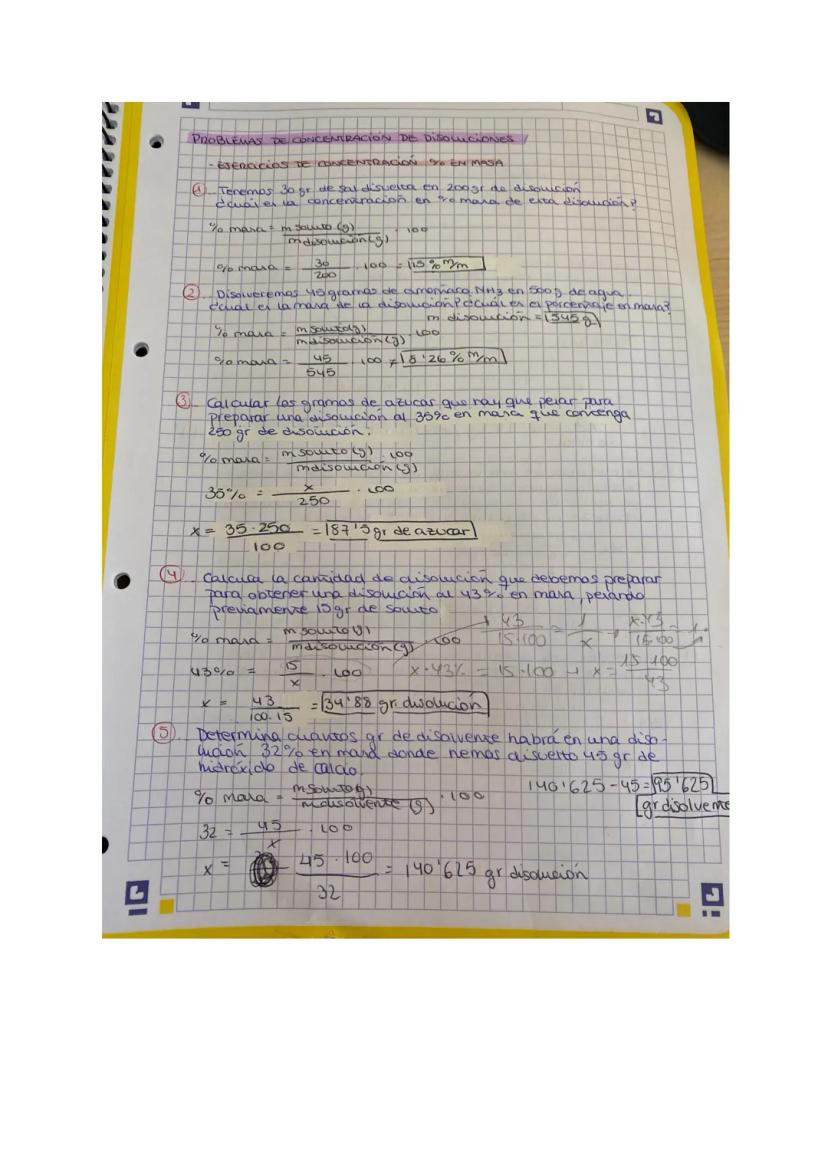 PROBLEMAS DE CONCENTRACIÓN DE DISOLUCIONES
- EJERCICIOS DE CONCENTRACIÓN % EN MASA
① Tenemos 30 gr de sal disuelta en 200 gr de disolución
¿cuál es la concentración en % masa de esta disolución?
% masa = m soluto (g) / m disolución (g) · 100
% masa = 30 / 200 · 100 = 15 % m/m
② Disolveremos 45 gramos de amoníaco NH3 en 500 g de agua.
¿cuál es la masa de la disolución? ¿cuál es el porcentaje en masa?
m disolución = 545 g
% masa = m soluto (g) / m disolución (g) · 100
% masa = 45 / 545 · 100 = 8'26 % m/m
③ Calcular los gramos de azucar que hay que pesar para
preparar una disolución al 35% en masa que contenga
250 gr de disolución.
% masa = m soluto (g) / m disolución (g) · 100
35% = x / 250 · 100
x = 35 · 250 / 100 = 87'5 gr de azucar
④ Calcula la cantidad de disolución que debemos preparar
para obtener una disolución al 43% en masa, pesando
previamente 15 gr de soluto
% masa = m soluto (g) / m disolución (g) · 100
43 / 15·100 = 1 / x → x·43 / 15·100 = 1
43% = 15 / x · 100
x · 43% = 15 · 100 → x = 15·100 / 43
x = 43 / 100·15 = 34'88 gr disolución
⑤ Determina cuantos gr de disolvente habrá en una diso-
lución 32% en masa donde hemos disuelto 45 gr de
hidróxido de calcio.
% masa = m soluto (g) / m disolvente (g) · 100
140'625 - 45 = 95'625
gr disolvente
32 = 45 / x · 100
x = 45 · 100 / 32 = 140'625 gr disolución